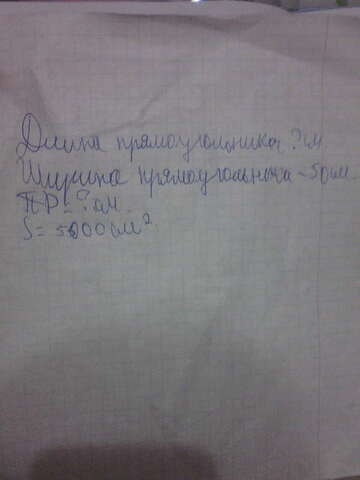 Длина прямоугольника ? см
Ширина прямоугольника - 50 см.
P = ? см.
S = 5000 см²